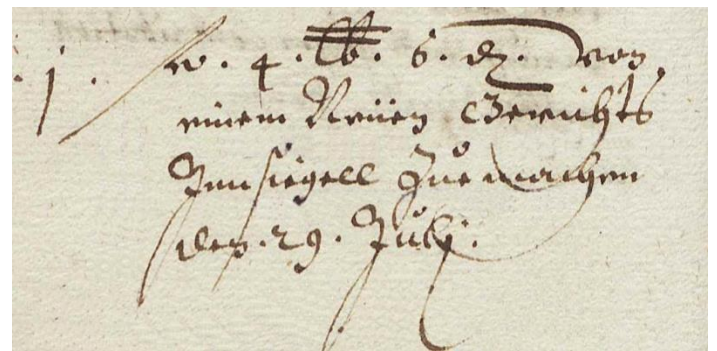 . j . w . 4 . lb . 6 . dz . von
einem Neüen Gerichts
Innsiegell Zue machen
den . 29 . Julij .